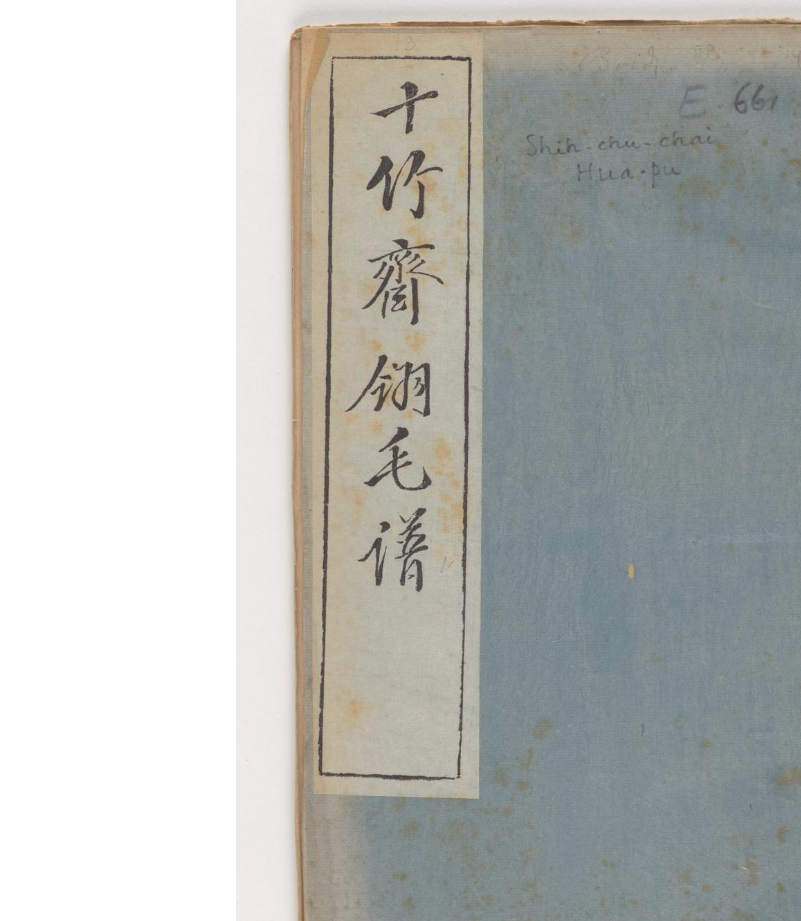 十竹齋翎毛譜
13
E. 661
Shih-chu-chai
Hua-pu